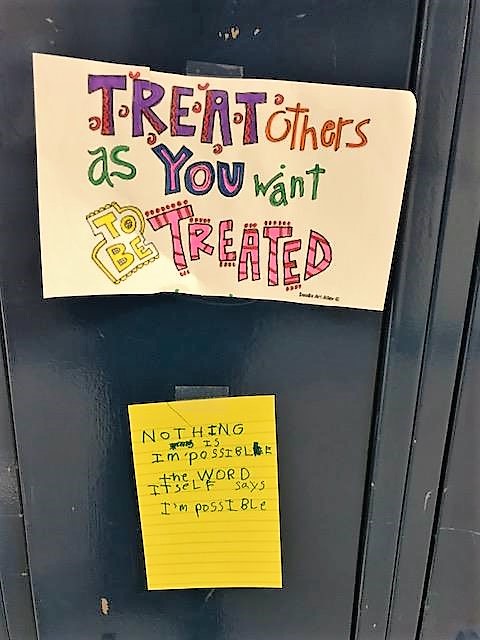 TREAT others
as YOU want
TO BE TREATED
Doodle Art Alley ©
NOTHING
IS
Im'possIBLE
the WORD
ITSELF says
I'm possIBLe